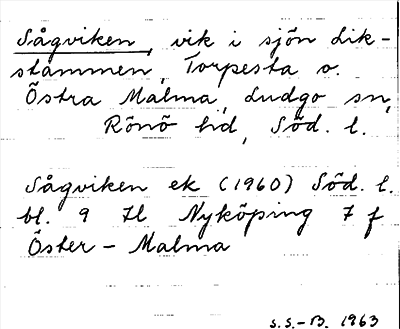 Sågviken, vik i sjön Lik-
stammen, Torpesta o.
Östra Malma, Ludgo sn,
Rönö hd, Söd. l.
Sågviken ek (1960) Söd. l.
bl. 9 Il Nyköping 7 f
Öster-Malma
S.S.-B. 1963